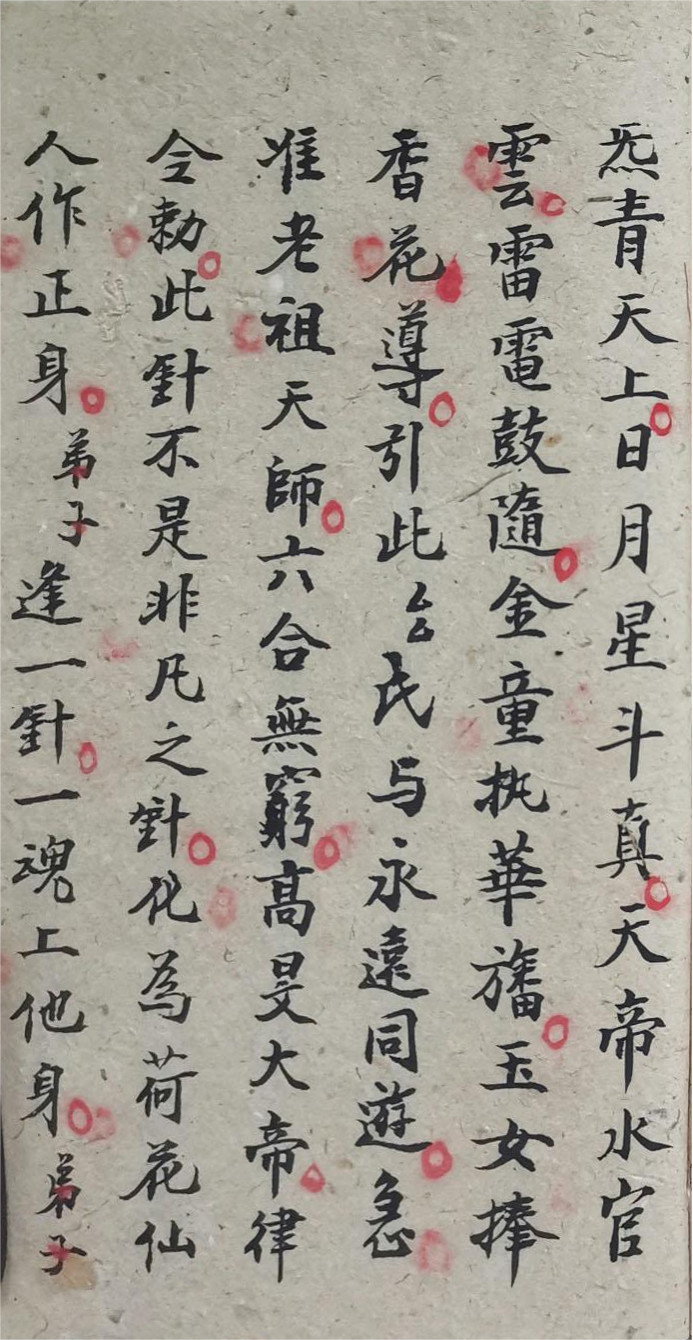 炁青天上日月星斗真天帝水官
雲雷電鼓隨金童执華旛玉女捧
香花導引此厶厶氏与永遠同遊急
准老祖天師六合無窮高旻大帝律
令勅此針不是非凡之針化為荷花仙
人作正身弟子逢一針一魂上他身弟子